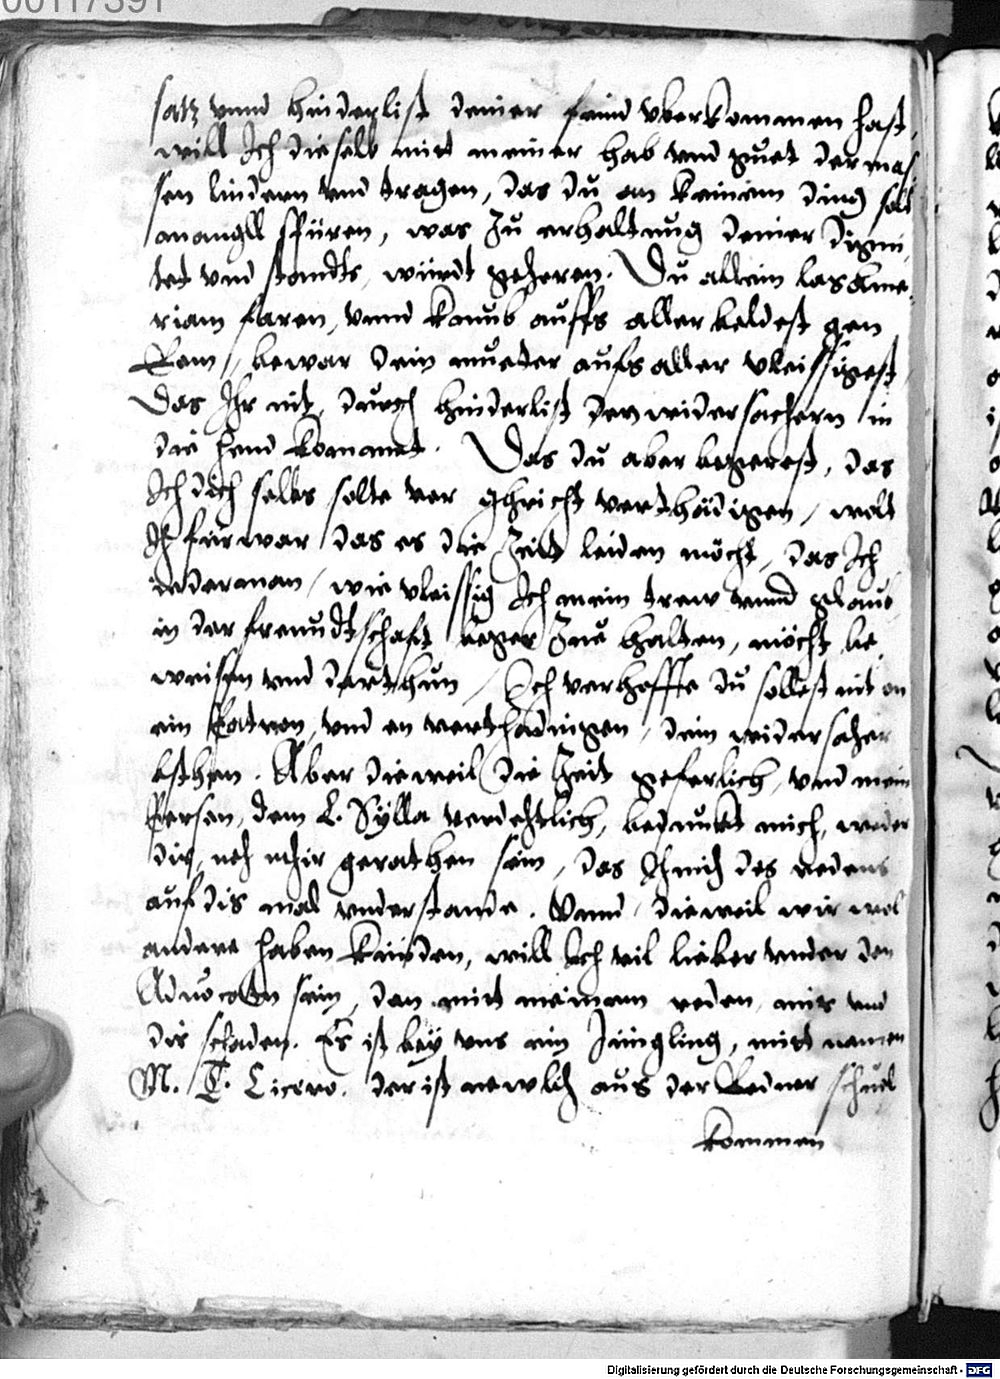 00117391
satz vnnd hinderlist deiner feind vberkommen hast,
will Ich dieselb mitt meiner hab vnd guet dermas,
sen lindern vnd tragen, das du an keinem ding solt
manngell spüren, was zu erhaltnug deiner digni,
tet vnd standts, würdt gehoren. Du allein las Ame,
riam faren, vnnd kumb auffs aller beldest gen
Rom, bewar dein mueter aufs aller vleissigest,
Das Ihr nit, durch hinderlist der widersachern in
die hend kommet. Das du aber begerest, das
Ich dich selbs solte vor ghricht verthädigen, wolt
Ich fürwar das es die Zeitt leiden möcht, das Ich
iederman, wie vleissig Ich mein trew vnnd glaub,
in der freundtschaft beger zue halten, möcht be,
weisen vnd darthun, Ich verhoffe du sollest nit on
ein Patron, vnd en verthädigen, dein widersacher
bsthen. Aber dieweil die Zeit geferlich, vnd mein
Person, dem L. Sylla verdechtlich, bedunckt mich, weder
dir, noch mihr gerathen sein, das Ich mich des redens
auf dis mal vnderstande. Vnnd, dieweil wir wol
andere haben künden, will Ich vil lieber vnder den
Aduocaten sein, dan mitt meinem reden mir vnd
dir schaden. Es ist bey vns ein Jüngling, mitt namen
M. T. Cicero. der ist newlich aus der Redner schuel
kommen
Digitalisierung gefördert durch die Deutsche Forschungsgemeinschaft - DFG